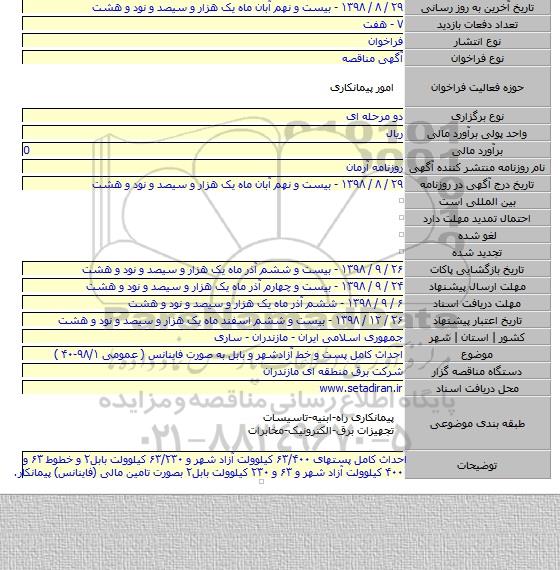 تاریخ آخرین به روز رسانی ۲۹ / ۸ / ۱۳۹۸ - بیست و نهم آبان ماه یک هزار و سیصد و نود و هشت
تعداد دفعات بازدید ۷ - هفت
نوع انتشار فراخوان
نوع فراخوان آگهی مناقصه
حوزه فعالیت فراخوان امور پیمانکاری
نوع برگزاری دو مرحله ای
واحد پولی برآورد مالی ریال
برآورد مالی 0
نام روزنامه منتشر کننده آگهی روزنامه آرمان
تاریخ درج آگهی در روزنامه ۲۹ / ۸ / ۱۳۹۸ - بیست و نهم آبان ماه یک هزار و سیصد و نود و هشت
بین المللی است
احتمال تمدید مهلت دارد
لغو شده
تجدید شده
تاریخ بازگشایی پاکات ۲۶ / ۹ / ۱۳۹۸ - بیست و ششم آذر ماه یک هزار و سیصد و نود و هشت
مهلت ارسال پیشنهاد ۲۴ / ۹ / ۱۳۹۸ - بیست و چهارم آذر ماه یک هزار و سیصد و نود و هشت
مهلت دریافت اسناد ۶ / ۹ / ۱۳۹۸ - ششم آذر ماه یک هزار و سیصد و نود و هشت
تاریخ اعتبار پیشنهاد ۲۶ / ۱۲ / ۱۳۹۸ - بیست و ششم اسفند ماه یک هزار و سیصد و نود و هشت
کشور | استان | شهر جمهوری اسلامی ایران - مازندران - ساری
موضوع احداث کامل پست و خط آزادشهر و بابل به صورت فاینانس ( عمومی ۹۸/۱-۴۰۰ )
دستگاه مناقصه گزار شرکت برق منطقه ای مازندران
محل دریافت اسناد www.setadiran.ir
طبقه بندی موضوعی پیمانکاری راه-ابنیه-تاسیسات
تجهیزات برق-الکترونیک-مخابرات
پایگاه اطلاع رسانی مناقصه و مزایده
۰۲۱-۸۸۳۴۹۶۷۰-۵
توضیحات احداث کامل پستهای ۶۳/۴۰۰ کیلوولت آزاد شهر و ۶۳/۲۳۰ کیلوولت بابل۲ و خطوط ۶۳ و
۴۰۰ کیلوولت آزاد شهر و ۶۳ و ۲۳۰ کیلوولت بابل۲ بصورت تامین مالی (فاینانس) پیمانکار.